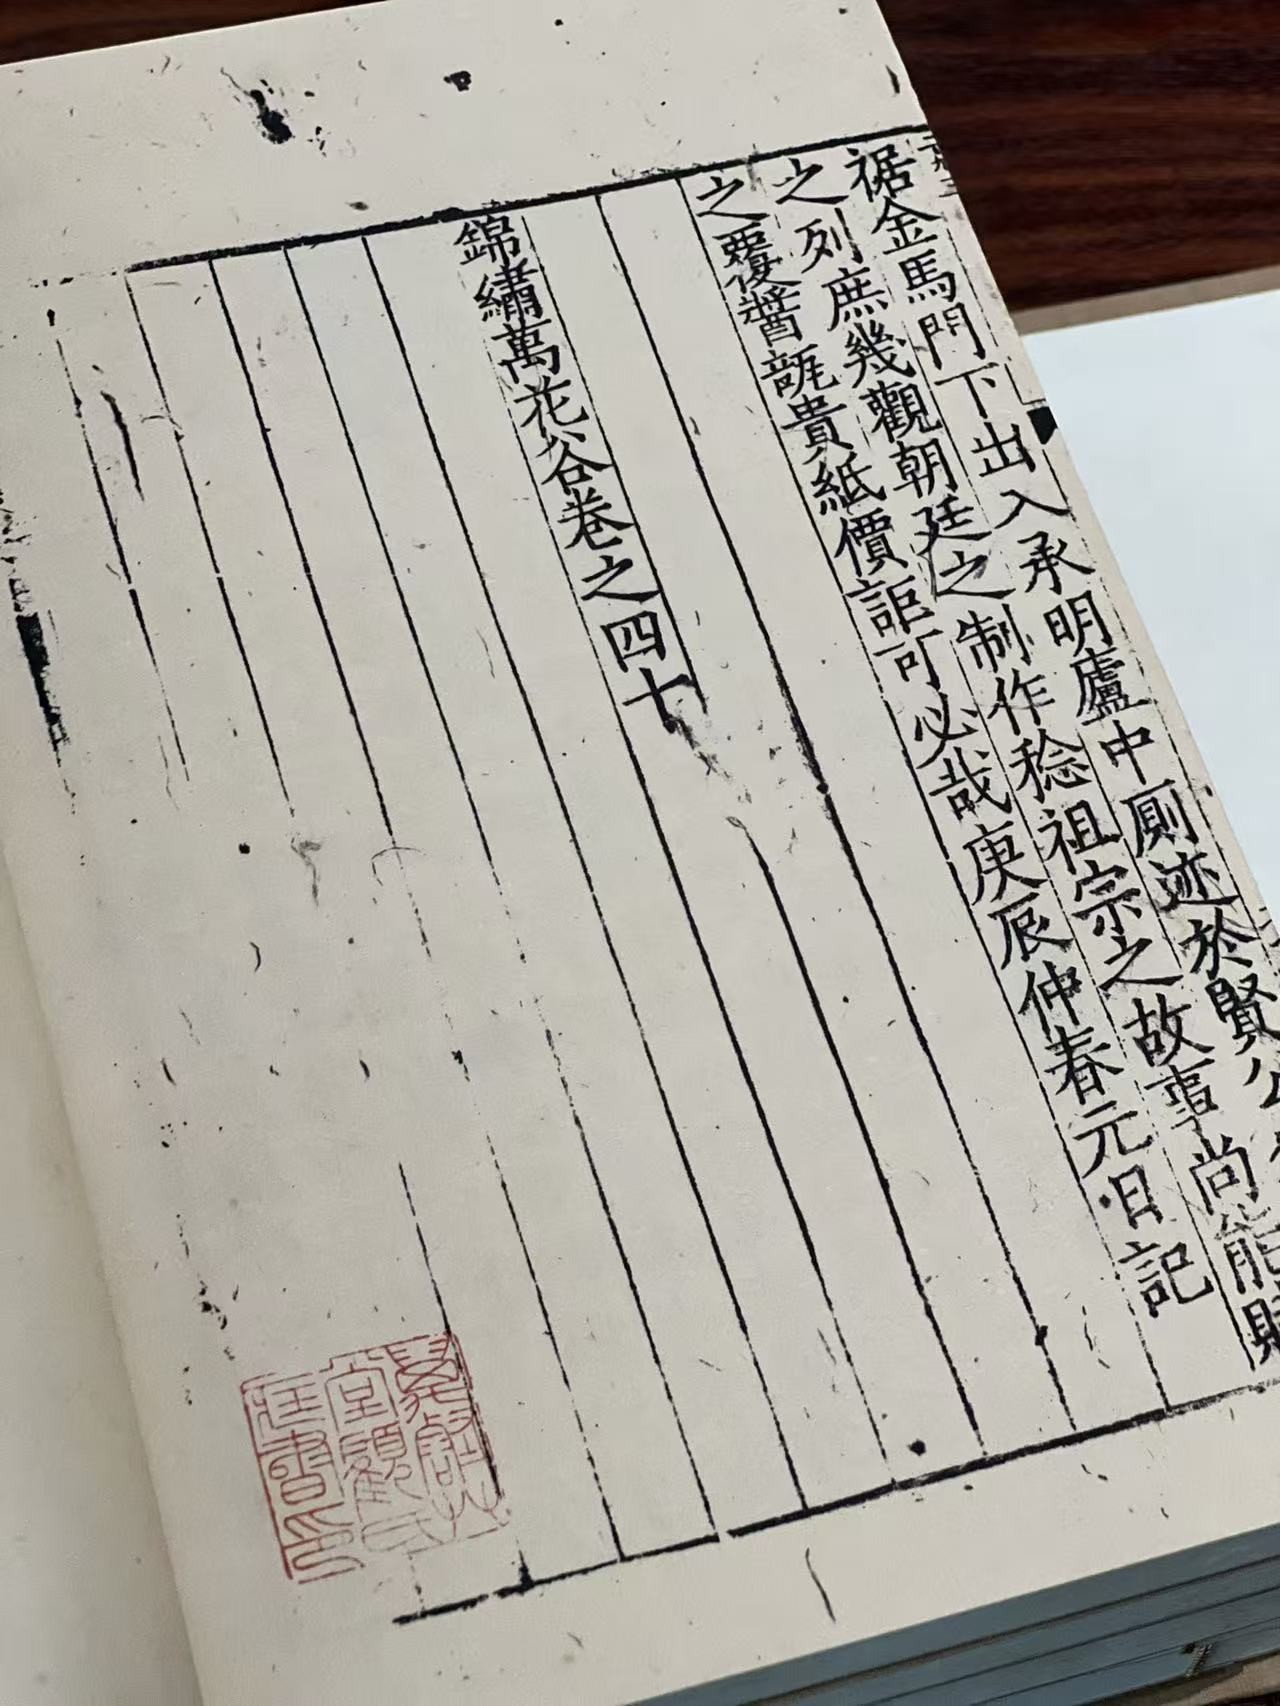 裾金馬門下出入承明廬中厠迹於賢公
之列庶幾觀朝廷之制作稔祖宗之故事尚能賦
之覆醬瓿貴紙價詎可必哉庚辰仲春元日記
錦繡萬花谷卷之四十